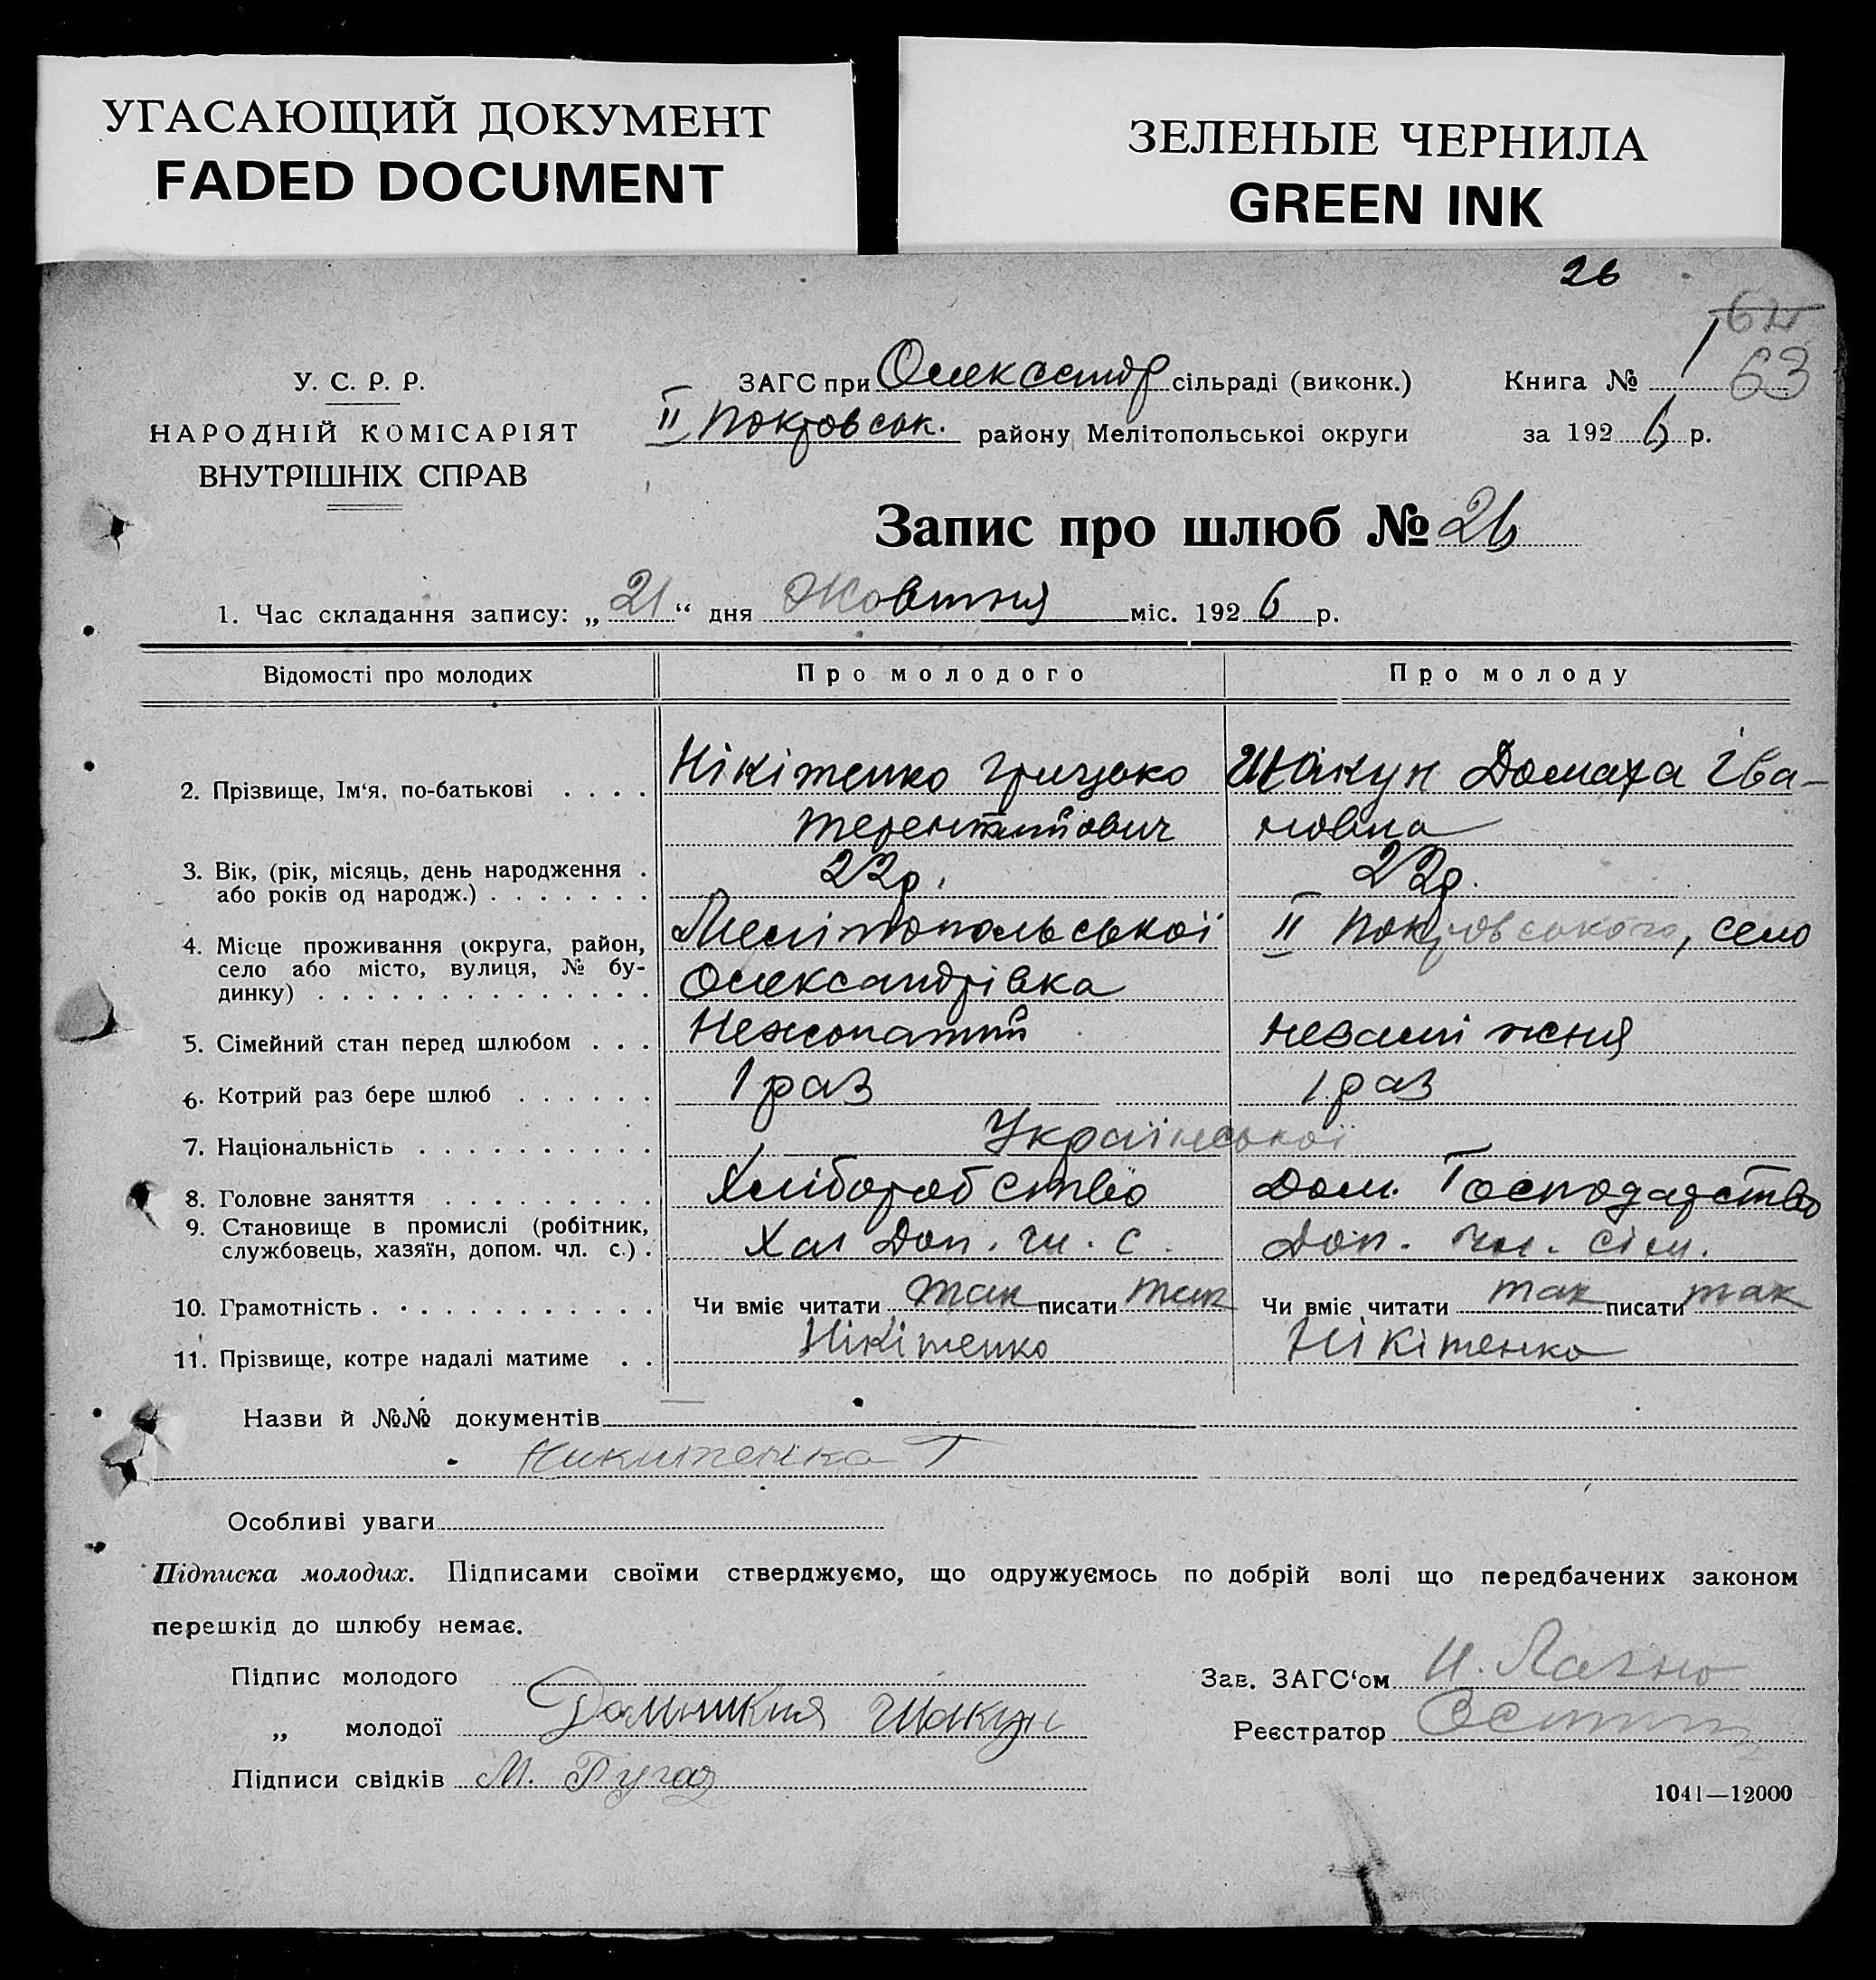 УГАСАЮЩИЙ ДОКУМЕНТ
FADED DOCUMENT
ЗЕЛЕНЫЕ ЧЕРНИЛА
GREEN INK
26
63
У. С. Р. Р.
НАРОДНІЙ КОМІСАРІЯТ
ВНУТРІШНІХ СПРАВ
ЗАГС при Олександр сільраді (виконк.)
II Покровськ. району Мелітопольської округи
Книга № 1
за 1926 р.
Запис про шлюб № 26
1. Час складання запису: „21“ дня Жовтня міс. 1926 р.
Відомості про молодих Про молодого Про молоду
2. Прізвище, Ім'я, по-батькові . . . . Нікітенко Грицько Шакун Домаха Іва-
Терентійович новна
3. Вік, (рік, місяць, день народження . 22р. 22р.
або років од народж.) . . . . . . .
4. Місце проживання (округа, район, Мелітопольської II Покровського, село
село або місто, вулиця, № бу- Олександрівка
динку) . . . . . . . . . . . . . .
5. Сімейний стан перед шлюбом . . . Нежонатий незаміжня
6. Котрий раз бере шлюб . . . . . . 1 раз 1 раз
7. Національність . . . . . . . . . . Української
8. Головне заняття . . . . . . . . . Хліборобство Дом. Господарство
9. Становище в промислі (робітник, Доп. чл. с. Доп. чл. сім.
службовець, хазяїн, допом. чл. с.) .
10. Грамотність . . . . . . . . . . . . Чи вміє читати так писати так Чи вміє читати так писати так
11. Прізвище, котре надалі матиме . . Нікітенко Нікітенко
Назви й №№ документів
Никитенко Г
Особливі уваги
Підписка молодих. Підписами своїми стверджуємо, що одружуємось по добрій волі що передбачених законом
перешкід до шлюбу немає.
Підпис молодого
„ молодої Шакун
Підписи свідків М.
Зав. ЗАГС'ом
Реєстратор
1041—12000